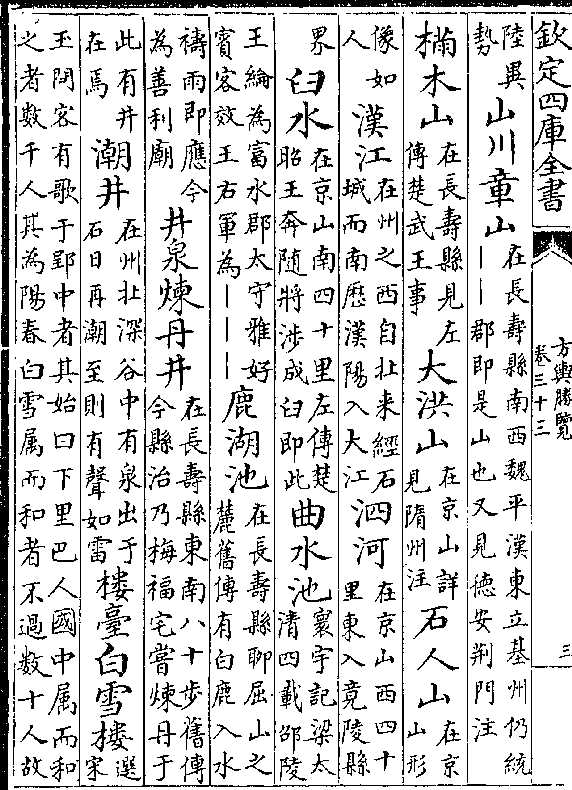 欽定四庫全書
方輿勝覽
卷三十三
三
陸異
勢
山川童山
在長壽縣南西魏平漢東立基州仍統
——郡即是山也又見德安荆門注
樠木山
在長壽縣見左
傳楚武王事
大洪山
在京山詳
見隋州注
石人山
在京
山形
像如
人
漢江
在州之西自北来經石
城而南歷漢陽入大江
泗河
在京山西四十
里東入竟陵縣
界
臼水
在京山南四十里左傳楚
昭王奔隨將涉成臼即此
曲水池
寰宇記梁太
清四載邵陵
王綸為富水郡太守雅好
賓客效王右軍為———
鹿湖池
在長壽縣聊屈山之
麓舊傳有白鹿入水
禱雨即應今
為善利廟
井泉煉丹井
在長壽縣東南八十步舊傳
今縣治乃梅福宅嘗煉丹于
此有井
在焉
潮井
在州北深谷中有泉出于
石日再潮至則有聲如雷
樓臺白雪樓
選
宋
玉客有歌于郢中者其始曰下里巴人國中属而和
之者数千人其為陽春白雪属而和者不過数十人故